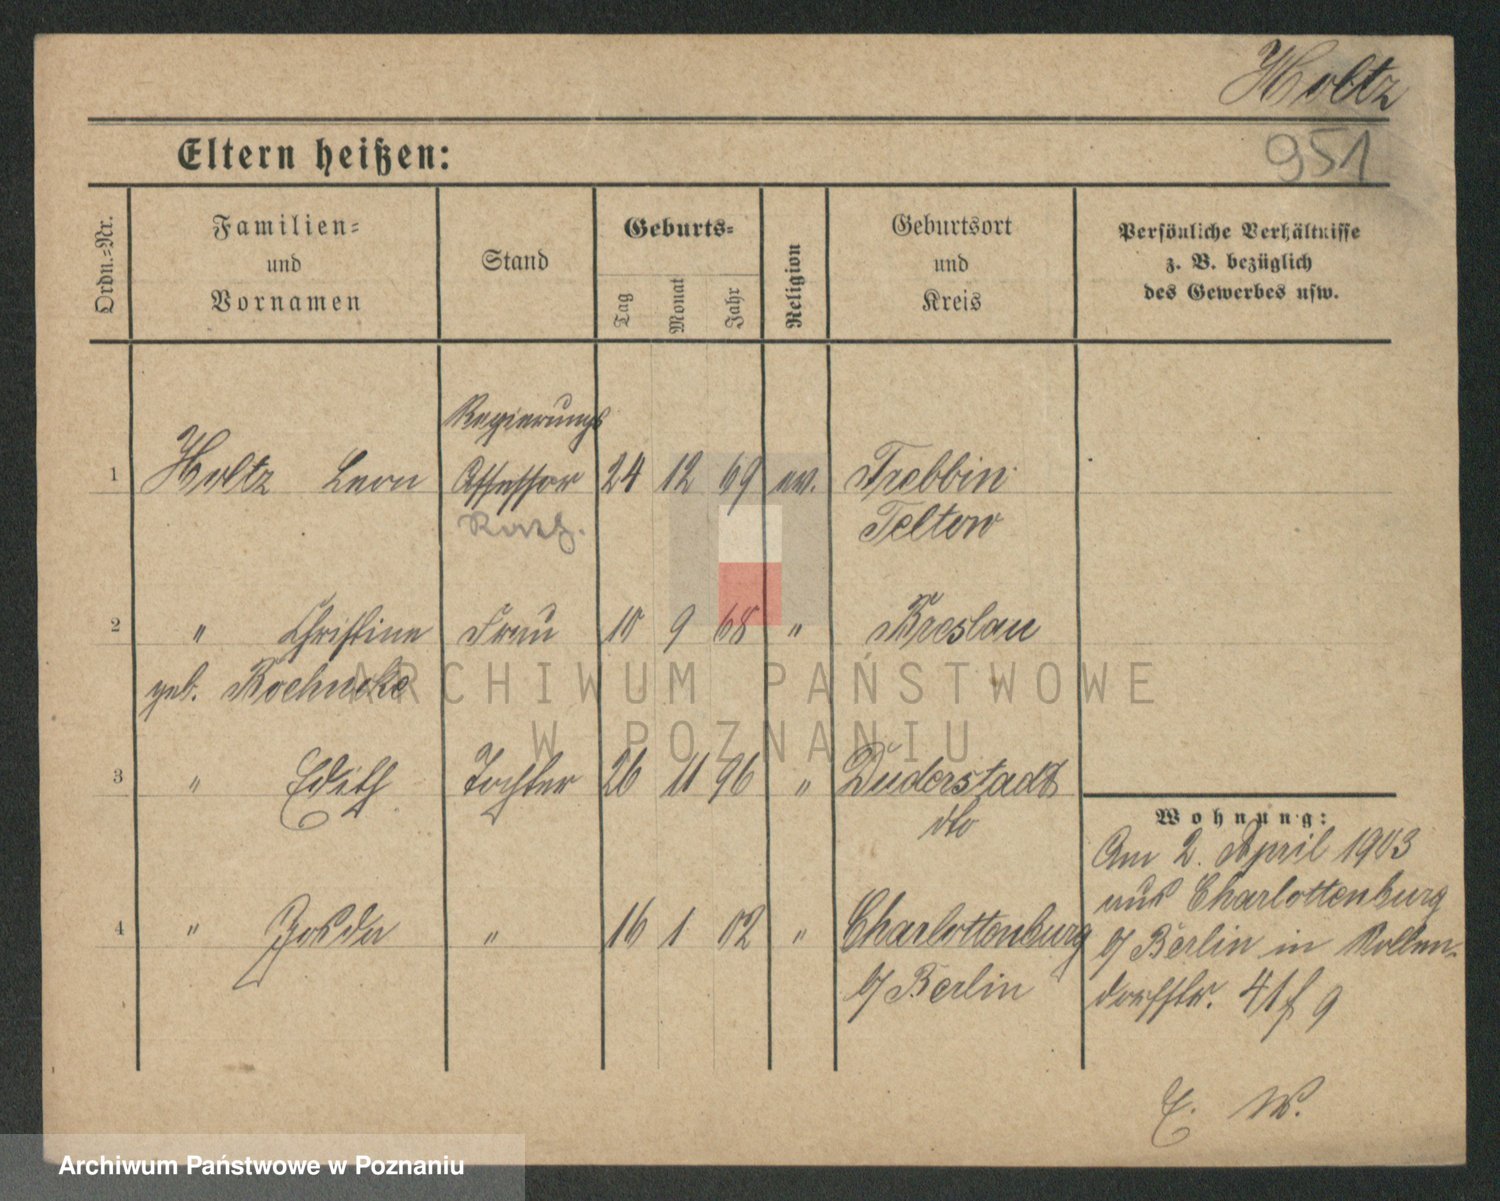 Holtz
951
Eltern heißen:
Ordn.-Nr.
Familien-
und
Vornamen
Stand
Geburts-
Tag
Monat
Jahr
Religion
Geburtsort
und
Kreis
Persönliche Verhältnisse
z. B. bezüglich
des Gewerbes usw.
Regierungs
1 Holtz Leon Assessor 24 12 69 ev. Trebbin
Rath. Teltow
2 " Christine Frau 10 9 68 " Breslau
geb. Boehncke
3 " Edith Tochter 26 11 96 " Duderstadt
dto
Wohnung:
Am 2. April 1903
aus Charlottenburg
4 " " 16 1 02 " Charlottenburg
b/ Berlin in Kollen-
b/ Berlin
dorffstr. 41 9
E. W.
ARCHIWUM PAŃSTWOWE
W POZNANIU
Archiwum Państwowe w Poznaniu